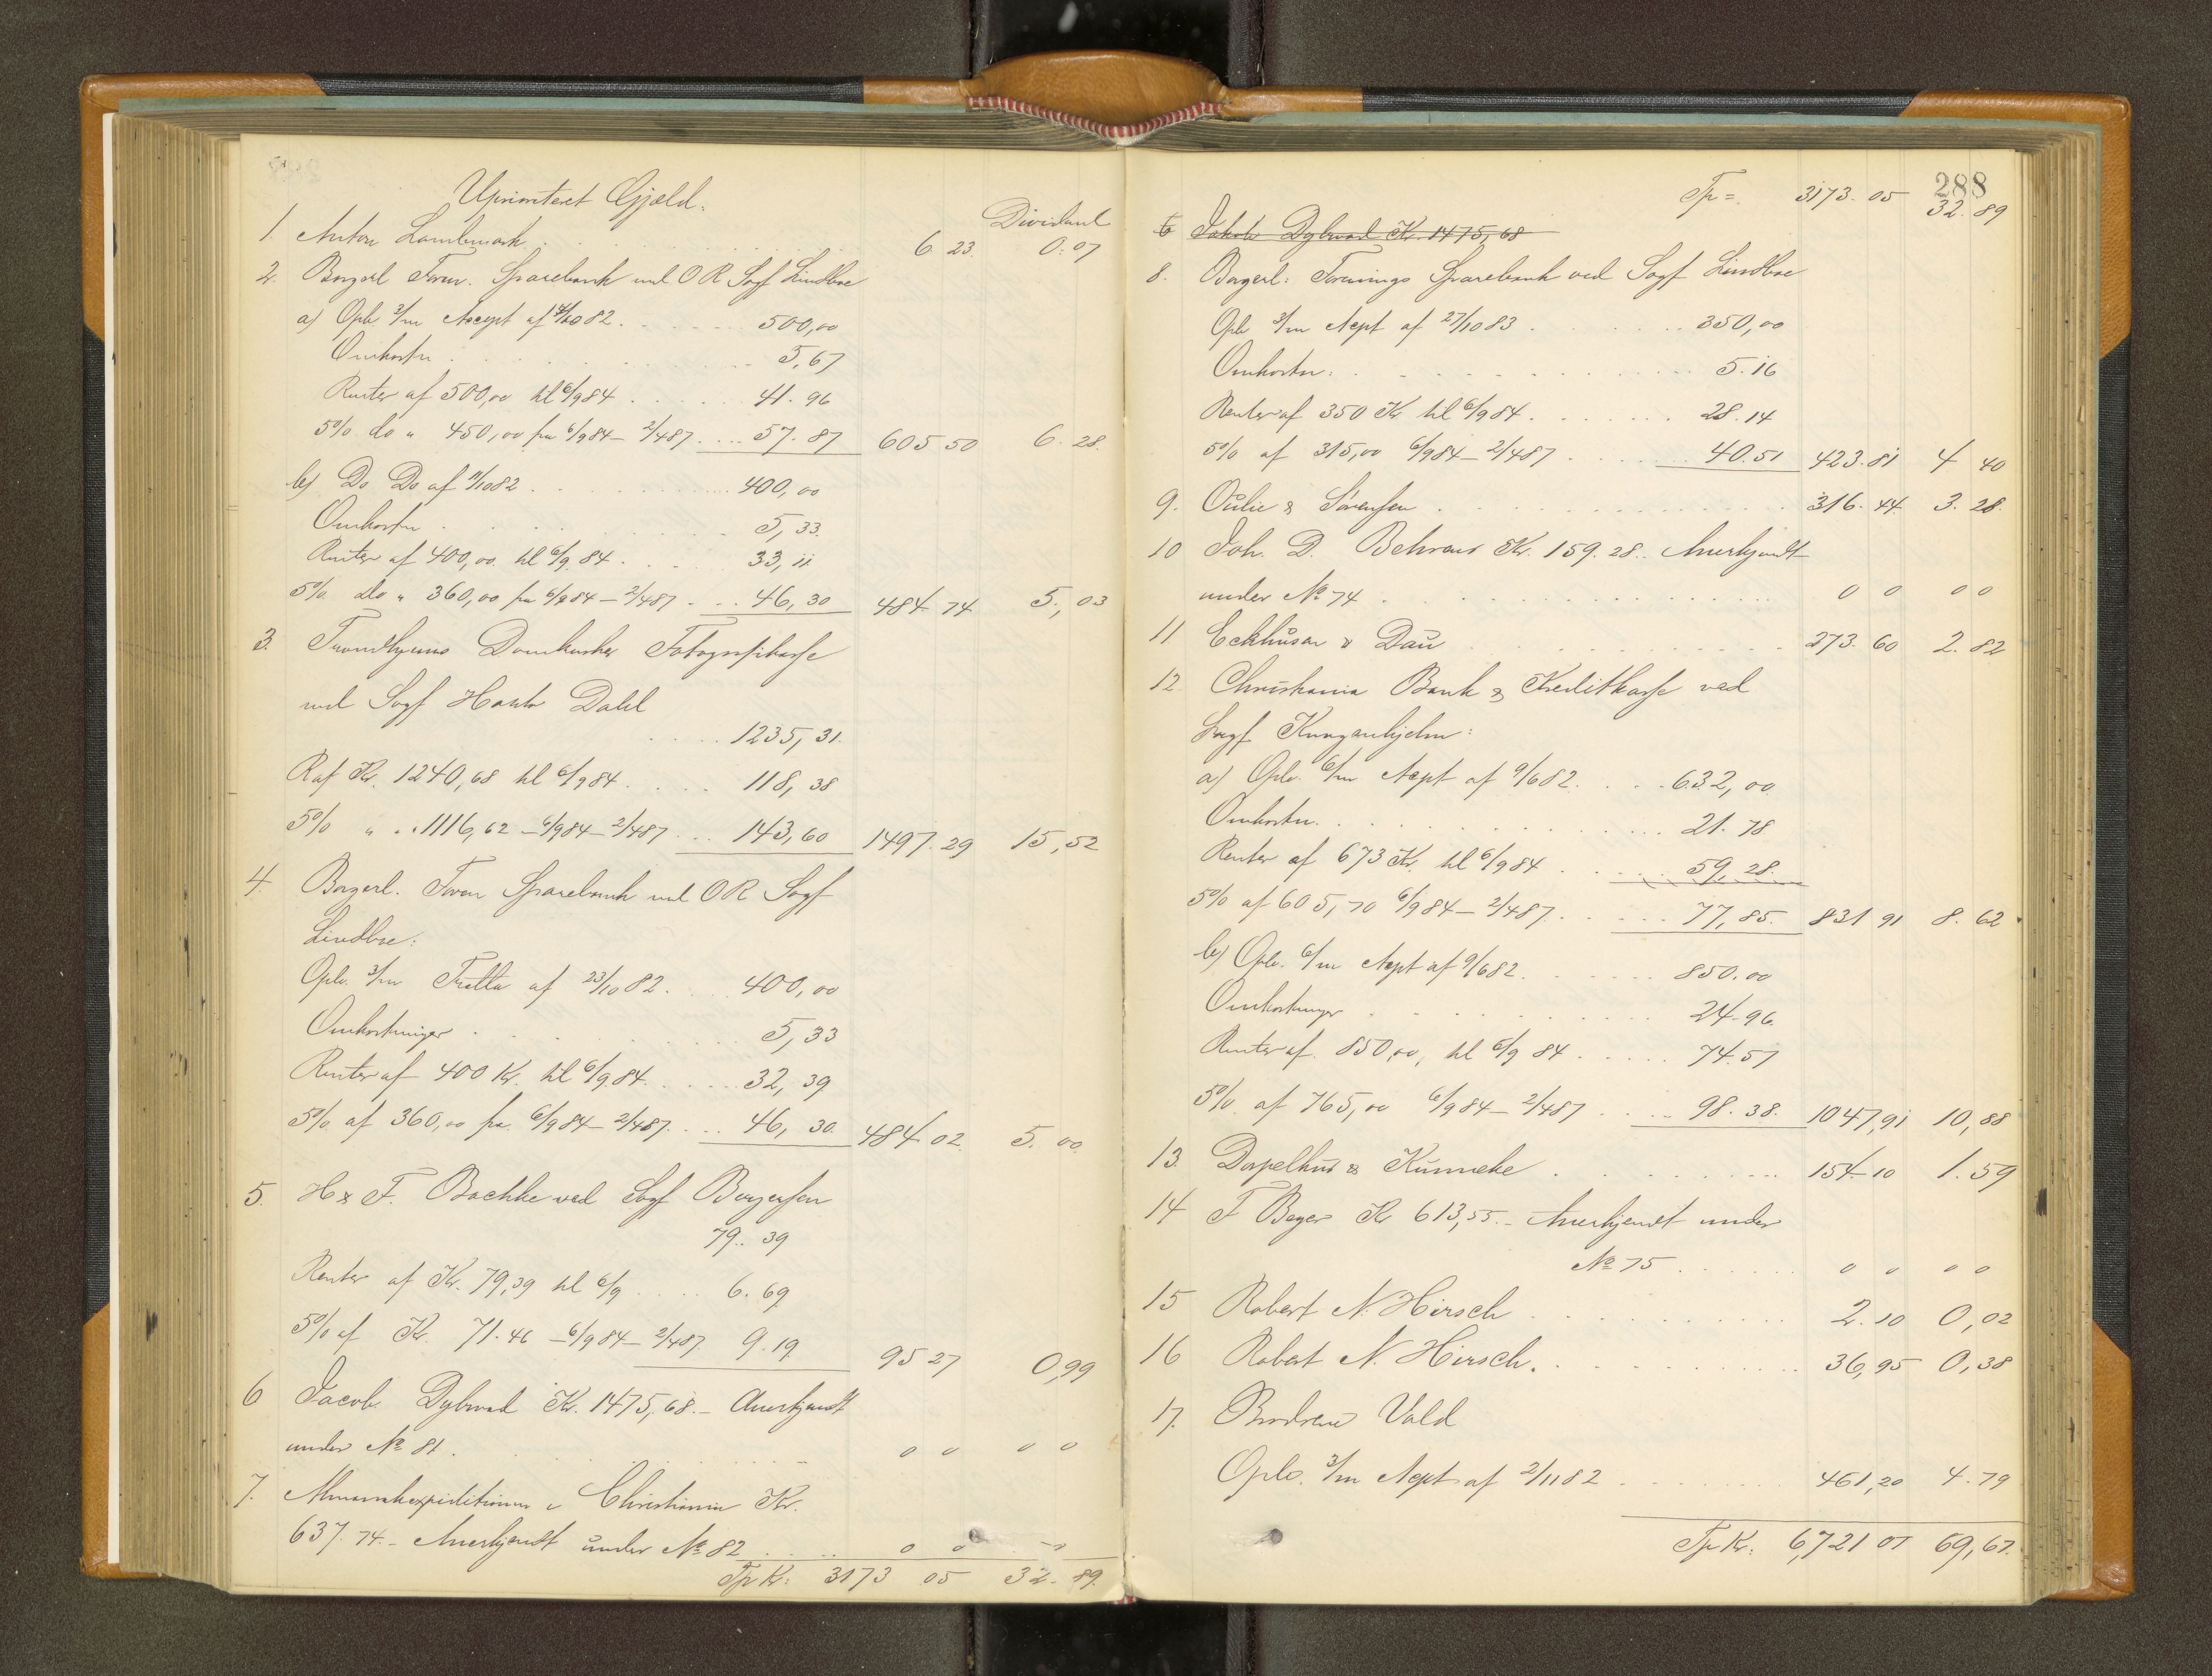 Uprioriteret Gjæld.
Dividend
1. Anton Landmark . . . 6 23. 0.07
2. Borgerl Foren. Sparebank ved O R Sagf Lindboe
a) Opb. 3/m Accept af 82. . . . 500,00
Omkostn . . . 5,67
Renter af 500,00 til 6/9 84 . . . 41.96
5% do " 450,00 fra 6/9 84 – 2/4 87 . . . 57.87 605 50 6.28.
b) Do Do af 11/10 82 . . . 400,00
Omkostn . . . 5,33.
Renter af 400,00 til 6/9 84 . . . 33,11
5% do " 360,00 fra 6/9 84 – 2/4 87 . . . 46,30 484 74 5,03
3. Trondhjems Domkirkes Fotografikasse
ved Sagf Dahl
. . . 1235,31.
R af Kr. 1240,68 til 6/9 84 . . . 118,38
5% " " 1116,62 – 6/9 84 – 2/4 87 . . . 143,60 1497.29 15,52
4. Borgerl. Foren Sparebank ved O R Sagf
Lindboe:
Opb. 3/m Tratta af 23/10 82. . . 400,00
Omkostninger . . . 5,33
Renter af 400 Kr. til 6/9 84. . . . 32,39
5% af 360,00 fra 6/9 84 – 2/4 87. . . 46,30. 484 02. 5.00.
5. H & F. Bachke ved Sagf Borgersen
79.39
Renter af Kr. 79,39 til 6/9 . . . 6.69
5% af Kr. 71.46 – 6/9 84 – 2/4 87. 9.19 95 27 0,99
6 Jacob Dybwad Kr. 1475,68. – Anerkjendt
under No 81. . . . 0 0 0 0
7. Almanakexpeditionen i Christiania Kr.
637.74. – Anerkjendt under No 82 . . . 0 0 – 0
Tp Kr: 3173 05 32.89.
288
Tp = 3173.05 32.89
6 Jakob Dybwad Kr. 1475,68
8. Borgerl: Forenings Sparebank ved Sagf Lindboe
Opb 3/m Acpt af 27/10 83 . . . 350,00
Omkostn: . . . 5.16
Renter af 350 Kr til 6/9 84 . . . 28.14
5% af 315,00 6/9 84 – 2/4 87 . . . 40.51 423.81 4 40
9. Oulie & Sørensen . . . 316.44. 3.28.
10 Joh. D. Behrens Kr. 159.28. Anerkjendt
under No 74 . . . 0 0 0 0
11 Eckhusen & Dau . . . 273.60 2.82
12. Christiania Bank & Kreditkasse ved
Sagf :
a) Opb. 6/m Acpt af 9/6 82. . . . 632,00.
Omkostn. . . . 21.78
Renter af 673 Kr. til 6/9 84 . . . 59,28.
5% af 605,70 6/9 84 – 2/4 87. . . . 77,85. 831 91 8.62
b) Opb. 6/m Acpt af 9/6 82. . . . 850.00
Omkostninger . . . 24.96.
Renter af 850,00, til 6/9 84 . . . 74.57
5% af 765,00 6/9 84 – 2/4 87 . . . 98.38. 1047,91 10,88
13. & . . . 154.10 1.59
14 F Beyer Kr 613,55. – Anerkjendt under
No 75 . . . 0 0 0 0
15 Robert N. Hirsch . . . 2.10 0,02
16 Robert N. Hirsch. . . . 36,95 0,38
17. Brødrene Vold
Opb. 3/m Acpt af 2/11 82 . . . 461,20 4.79
Tp Kr. 6,721 07 69,67.